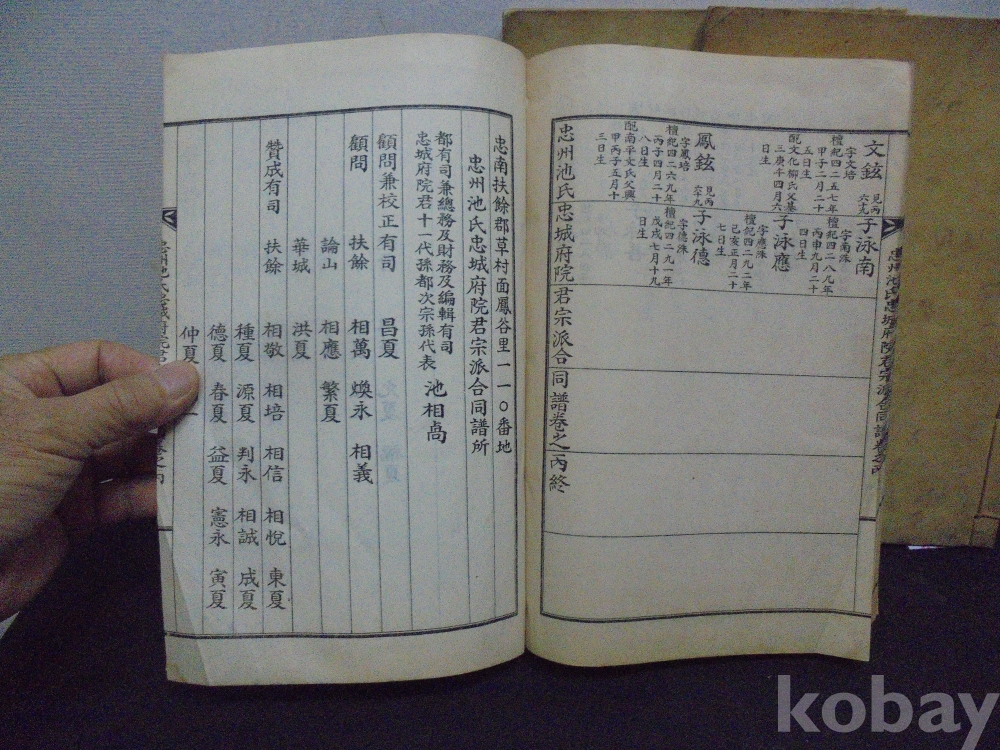 文鉉
見丙
六十九
字文培
檀紀四二五七年
甲子二月二十
五日生
配文化柳氏父基
三庚午四月六
日生
鳳鉉
見丙
六十九
字鳳培
檀紀四二六九年
丙子四月二十
八日生
配南平文氏父興
甲丙子五月十
三日生
子泳南
字南洙
檀紀四二八九年
丙申九月二十
四日生
子泳應
字應洙
檀紀四二九二年
己亥正月二十
七日生
子泳德
字德洙
檀紀四二九一年
戊戌七月十九
日生
忠州池氏忠城府院君宗派合同譜卷之丙終
忠州池氏忠城府院君宗派合同譜卷之丙
忠南扶餘郡草村面鳳谷里一一〇番地
忠州池氏忠城府院君宗派合同譜所
都有司兼總務及財務及編輯有司
忠城府院君十一代孫都次宗孫代表 池相卨
顧問兼校正有司 昌夏
顧問 扶餘 相萬 煥永 相義
論山 相應 繁夏
華城 洪夏
贊成有司 扶餘 相敬 相培 相信 相悅 東夏
種夏 源夏 判永 相誠 成夏
德夏 春夏 益夏 憲永 寅夏
仲夏
忠州池氏忠城府院君
卷之丙
kobay